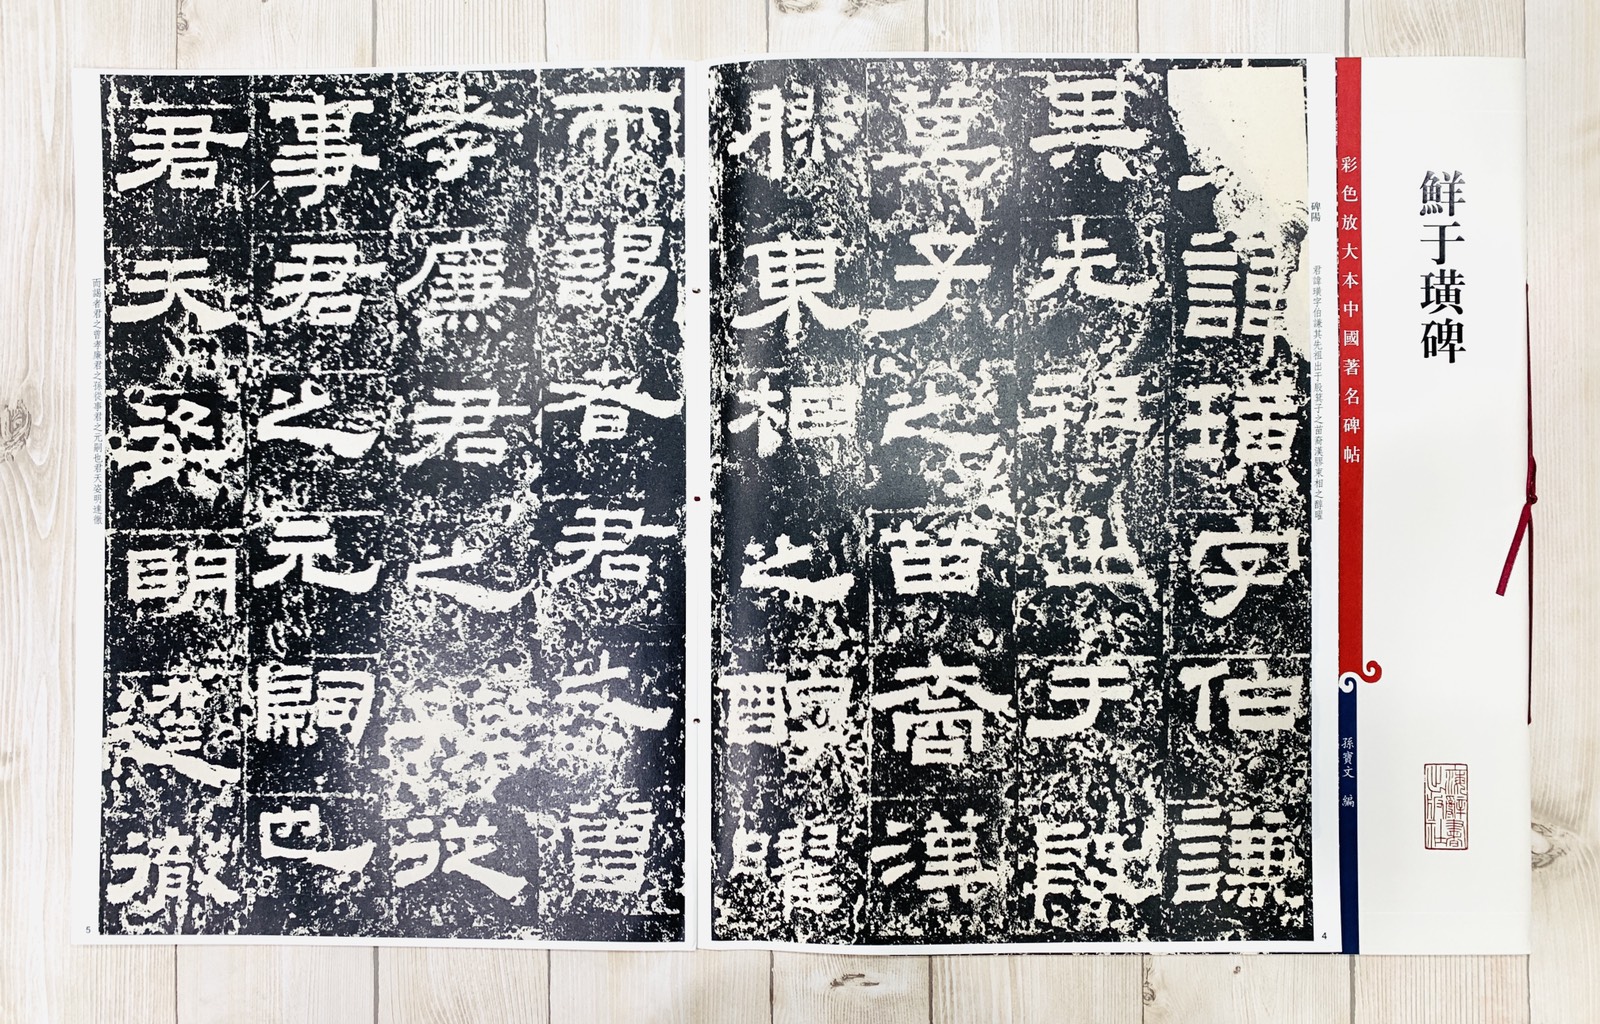 鮮于璜碑
上海辭書
出版社
彩色放大本中國著名碑帖
孫寶文 編
碑陽
君諱璜字伯謙其先祖出于殷箕子之苗裔漢膠東相之醇曜
諱璜字伯謙
其先祖出于殷
萁子之苗裔漢
膠東相之醇曜
4
而謁者君之曾
孝廉君之孫從
事君之元嗣也
君天姿明達徹
而謁者君之曾孝廉君之孫從事君之元嗣也君天姿明達徹
5